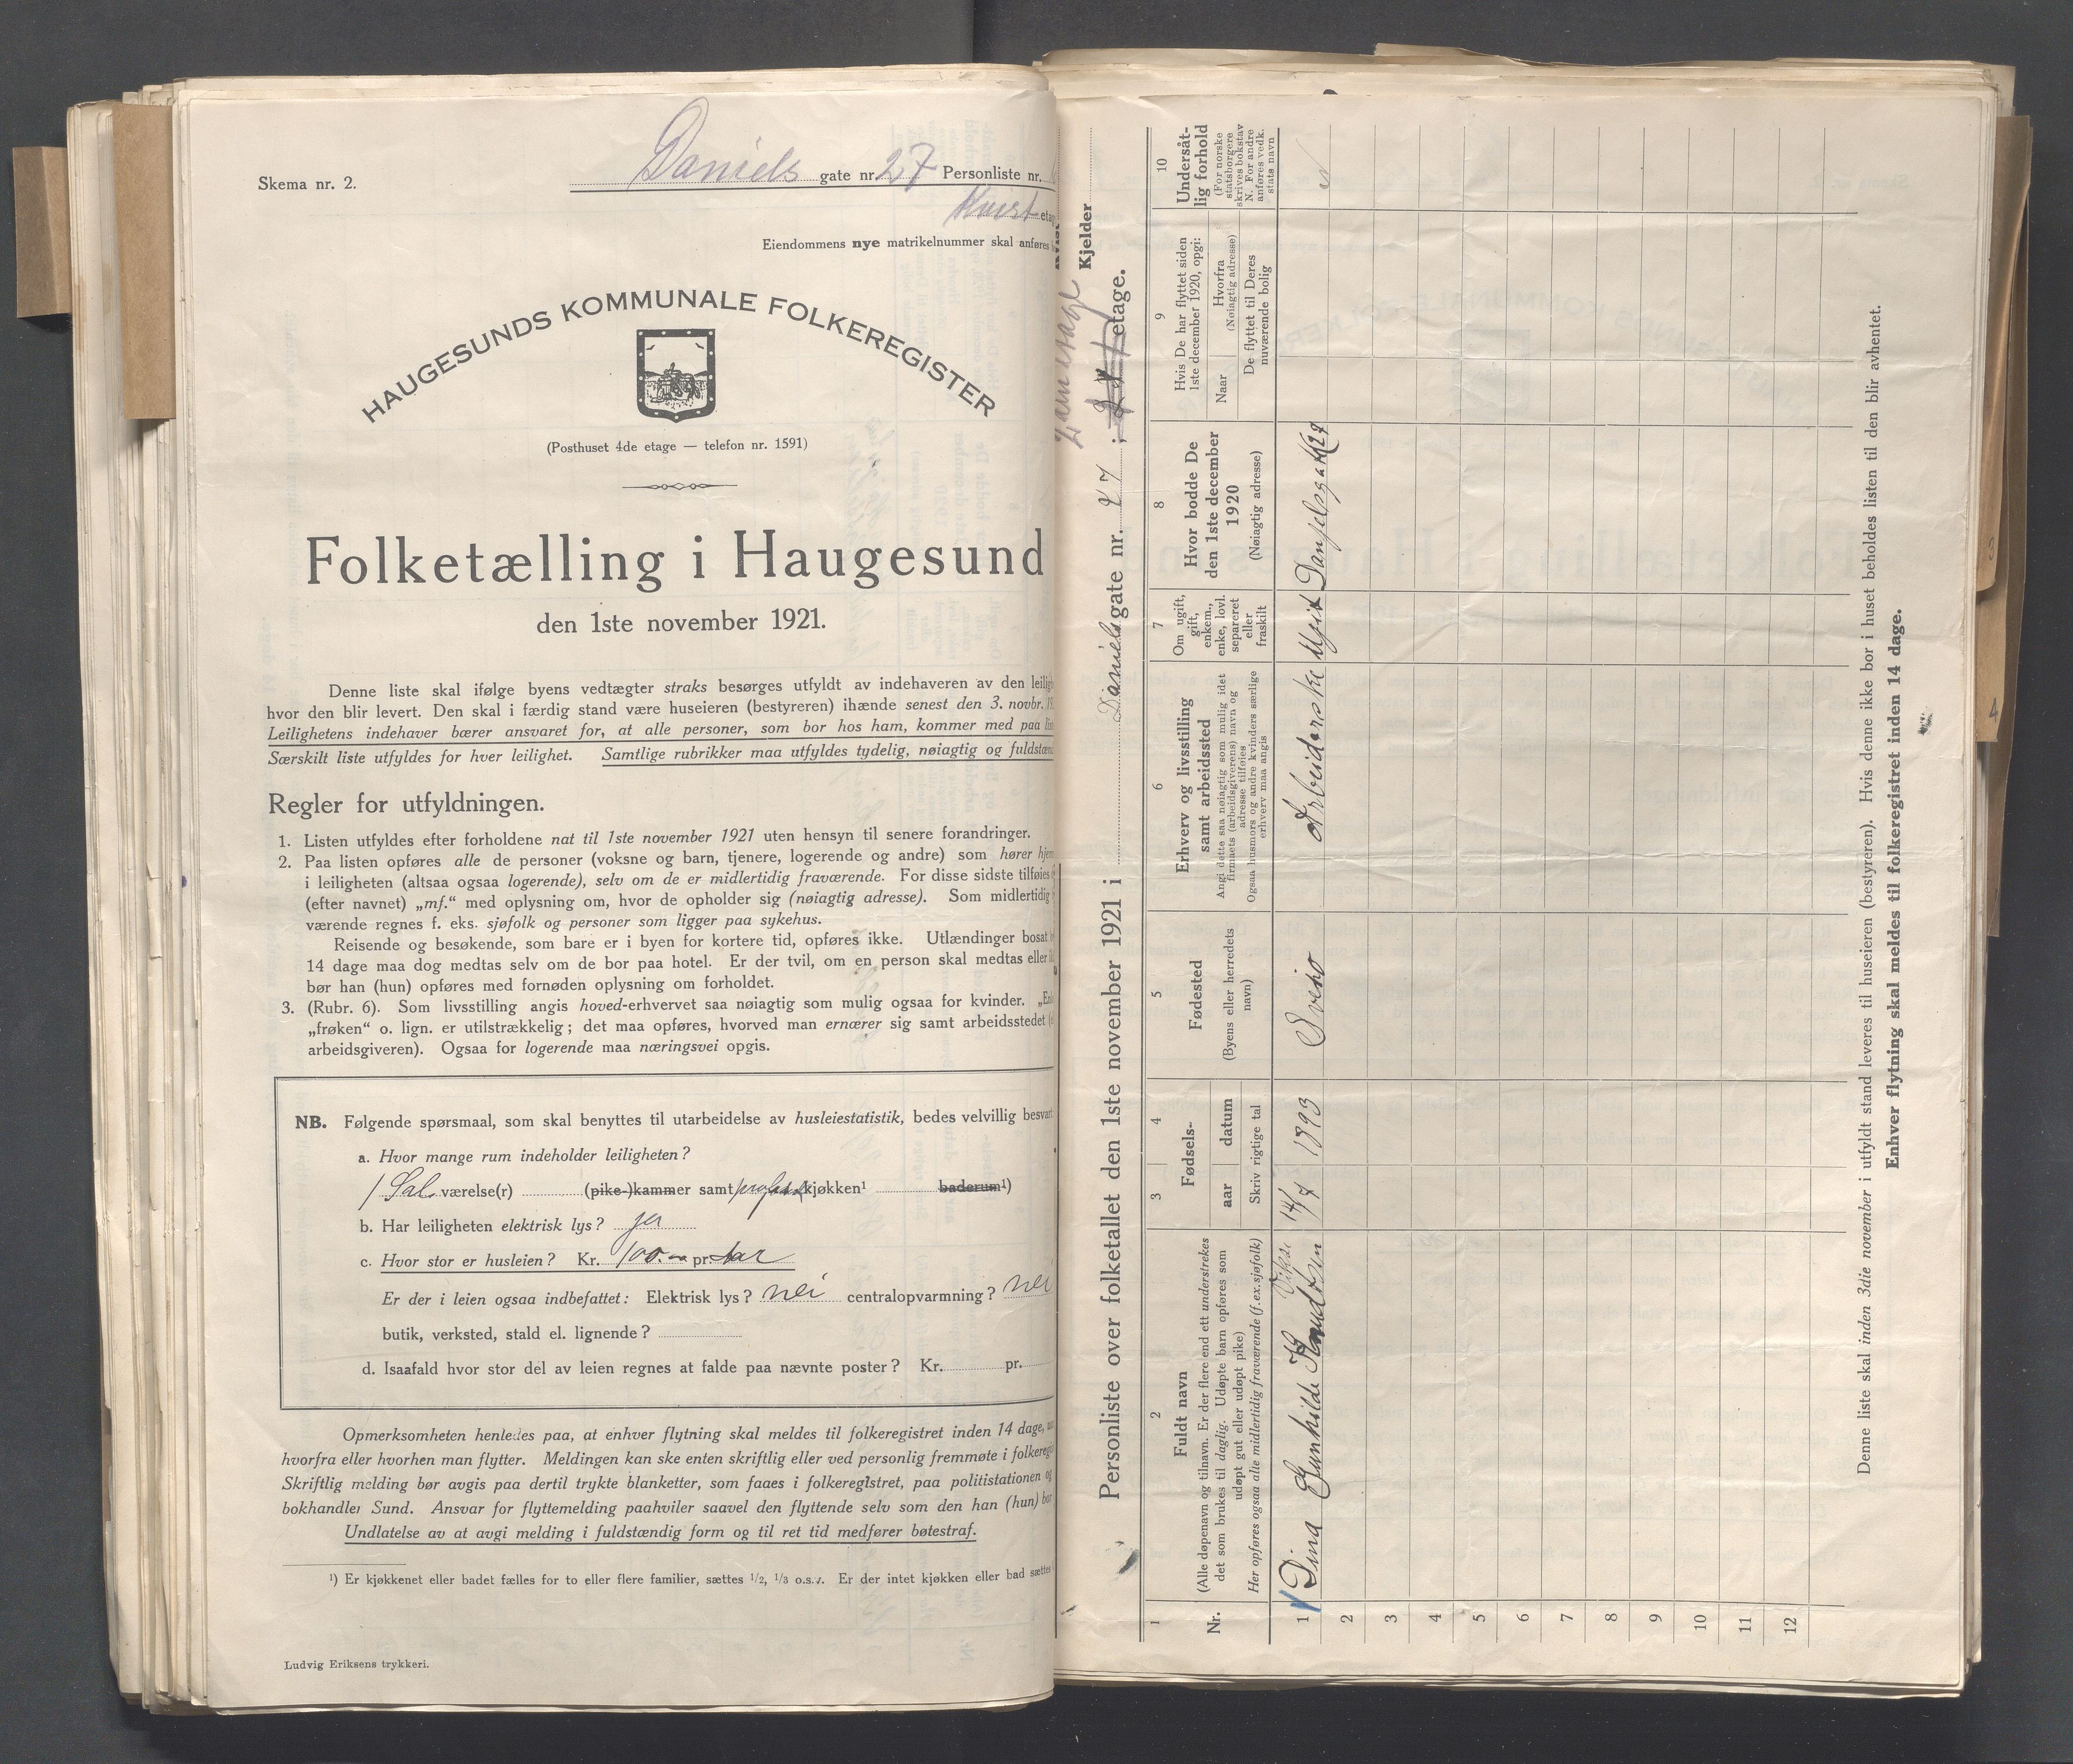 Skema nr. 2.
Daniels gate nr. 27 Personliste nr.
Kvist etag
Eiendommens nye matrikelnummer skal anføres
HAUGESUNDS KOMMUNALE FOLKEREGISTER
(Posthuset 4de etage — telefon nr. 1591)
Folketælling i Haugesund
den 1ste november 1921.
Denne liste skal ifølge byens vedtægter straks besørges utfyldt av indehaveren av den leiligh
hvor den blir levert. Den skal i færdig stand være huseieren (bestyreren) ihænde senest den 3. novbr. 19
Leilighetens indehaver bærer ansvaret for, at alle personer, som bor hos ham, kommer med paa lis
Særskilt liste utfyldes for hver leilighet. Samtlige rubrikker maa utfyldes tydelig, nøiagtig og fuldstænd
Regler for utfyldningen.
1. Listen utfyldes efter forholdene nat til 1ste november 1921 uten hensyn til senere forandringer.
2. Paa listen opføres alle de personer (voksne og barn, tjenere, logerende og andre) som hører hjem
i leiligheten (altsaa ogsaa logerende), selv om de er midlertidig fraværende. For disse sidste tilføies
(efter navnet) „mf.“ med oplysning om, hvor de opholder sig (nøiagtig adresse). Som midlertidig
værende regnes f. eks. sjøfolk og personer som ligger paa sykehus.
Reisende og besøkende, som bare er i byen for kortere tid, opføres ikke. Utlændinger bosat
14 dage maa dog medtas selv om de bor paa hotel. Er der tvil, om en person skal medtas eller
bør han (hun) opføres med fornøden oplysning om forholdet.
3. (Rubr. 6). Som livsstilling angis hoved-erhvervet saa nøiagtig som mulig ogsaa for kvinder. „En
„frøken“ o. lign. er utilstrækkelig; det maa opføres, hvorved man ernærer sig samt arbeidsstedet
arbeidsgiveren). Ogsaa for logerende maa næringsvei opgis.
NB. Følgende spørsmaal, som skal benyttes til utarbeidelse av husleiestatistik, bedes velvillig besvart
a. Hvor mange rum indeholder leiligheten?
1 Sal værelse(r) (pike-)kammer samt kjøkken¹ baderum¹)
b. Har leiligheten elektrisk lys? ja
c. Hvor stor er husleien? Kr. 100.- pr. aar
Er der i leien ogsaa indbefattet: Elektrisk lys? nei centralopvarmning? nei
butik, verksted, stald el. lignende?
d. Isaafald hvor stor del av leien regnes at falde paa nævnte poster? Kr. pr.
Opmerksomheten henledes paa, at enhver flytning skal meldes til folkeregistret inden 14 dage,
hvorfra eller hvorhen man flytter. Meldingen kan ske enten skriftlig eller ved personlig fremmøte i folkeregi
Skriftlig melding bør avgis paa dertil trykte blanketter, som faaes i folkeregistret, paa politistationen og
bokhandler Sund. Ansvar for flyttemelding paahviler saavel den flyttende selv som den han (hun) bor
Undlatelse av at avgi melding i fuldstændig form og til ret tid medfører bøtestraf.
¹) Er kjøkkenet eller badet fælles for to eller flere familier, sættes 1/2, 1/3 o.s.v. Er der intet kjøkken eller bad sættes
Ludvig Eriksens trykkeri.
Kvist
Kjelder
Personliste over folketallet den 1ste november 1921 i Daniels gate nr. 27 ; etage.
1
Nr.
2
Fuldt navn
(Alle døpenavn og tilnavn. Er der flere end ett understrekes
det som brukes til daglig. Udøpte barn opføres som
udøpt gut eller udøpt pike)
Her opføres ogsaa alle midlertidig fraværende (f. ex. sjøfolk)
3 4
Fødsels-
aar datum
Skriv rigtige tal
5
Fødested
(Byens eller herredets
navn)
6
Erhverv og livsstilling
samt arbeidssted
Angi dette saa nøiagtig som mulig idet
firmaets (arbeidsgiverens) navn og
adresse tilføies
Ogsaa husmors og andre kvinders særlige
erhverv maa angis
7
Om ugift,
gift,
enkem.,
enke, lovl.
separeret
eller
fraskilt
8
Hvor bodde De
den 1ste december
1920
(Nøiagtig adresse)
9
Hvis De har flyttet siden
1ste december 1920, opgi:
Naar
Hvorfra
(Nøiagtig adresse)
De flyttet til Deres
nuværende bolig
10
Undersåt-
lig forhold
(For norske
statsborgere
skrives bokstav
N. For andre
anføres vedk.
stats navn
1 Dina Gunhilde Knudtsen 14/7 1893 Sveio Arbeiderske Ugift Danielsgt 27
2
3
4
5
6
7
8
9
10
11
12
Denne liste skal inden 3die november i utfyldt stand leveres til huseieren (bestyreren). Hvis denne ikke bor i huset beholdes listen til den blir avhentet.
Enhver flytning skal meldes til folkeregistret inden 14 dage.